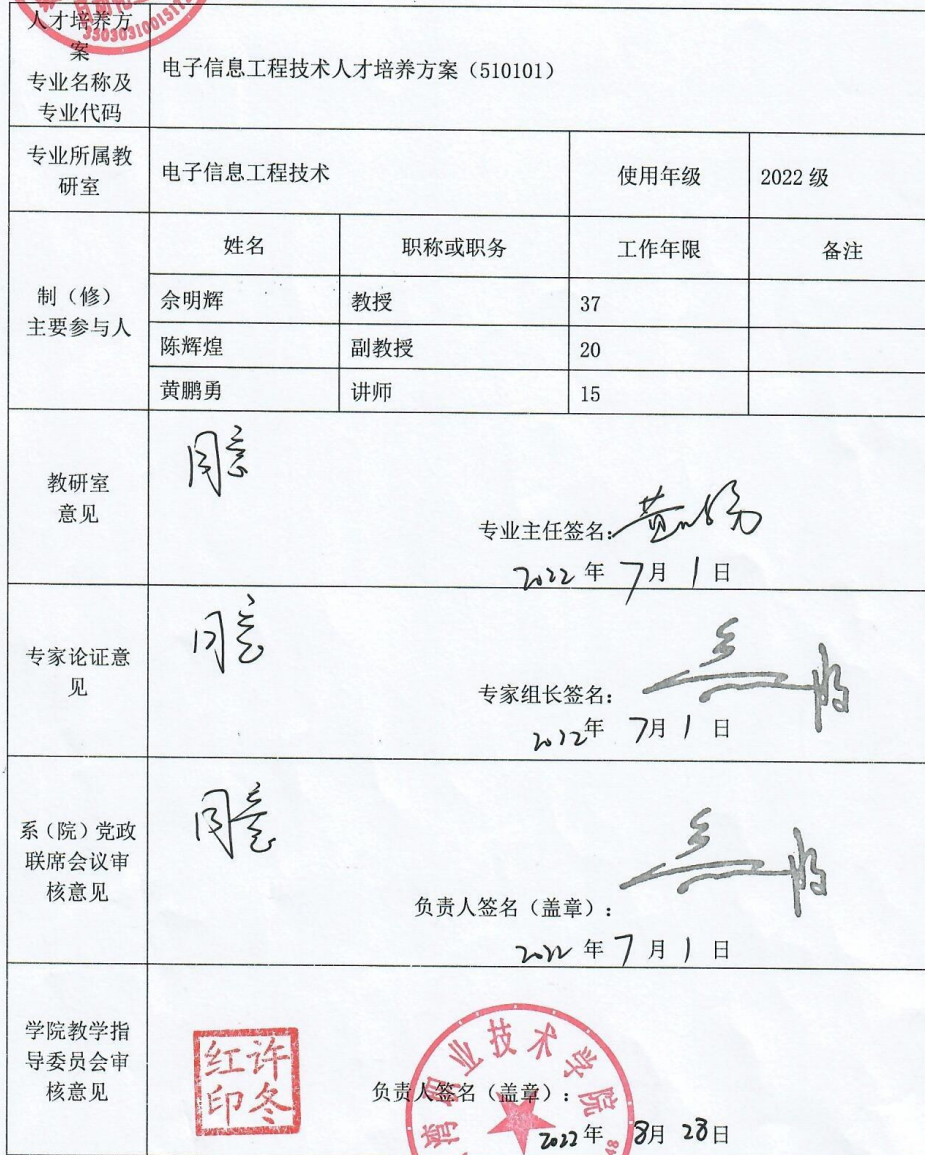 3503031001517
人才培养方
案
专业名称及
专业代码
电子信息工程技术人才培养方案（510101）
专业所属教
研室
电子信息工程技术
使用年级
2022 级
制（修）
主要参与人
姓名
职称或职务
工作年限
备注
佘明辉
教授
37
陈辉煌
副教授
20
黄鹏勇
讲师
15
教研室
意见
同意
专业主任签名：
2022 年 7 月 1 日
专家论证意
见
同意
专家组长签名：
2022年 7月 1 日
系（院）党政
联席会议审
核意见
同意
负责人签名（盖章）：
2022 年 7 月 1 日
学院教学指
导委员会审
核意见
许冬
红印
湾职业技术学院
负责人签名（盖章）：
2022年 8月 28日